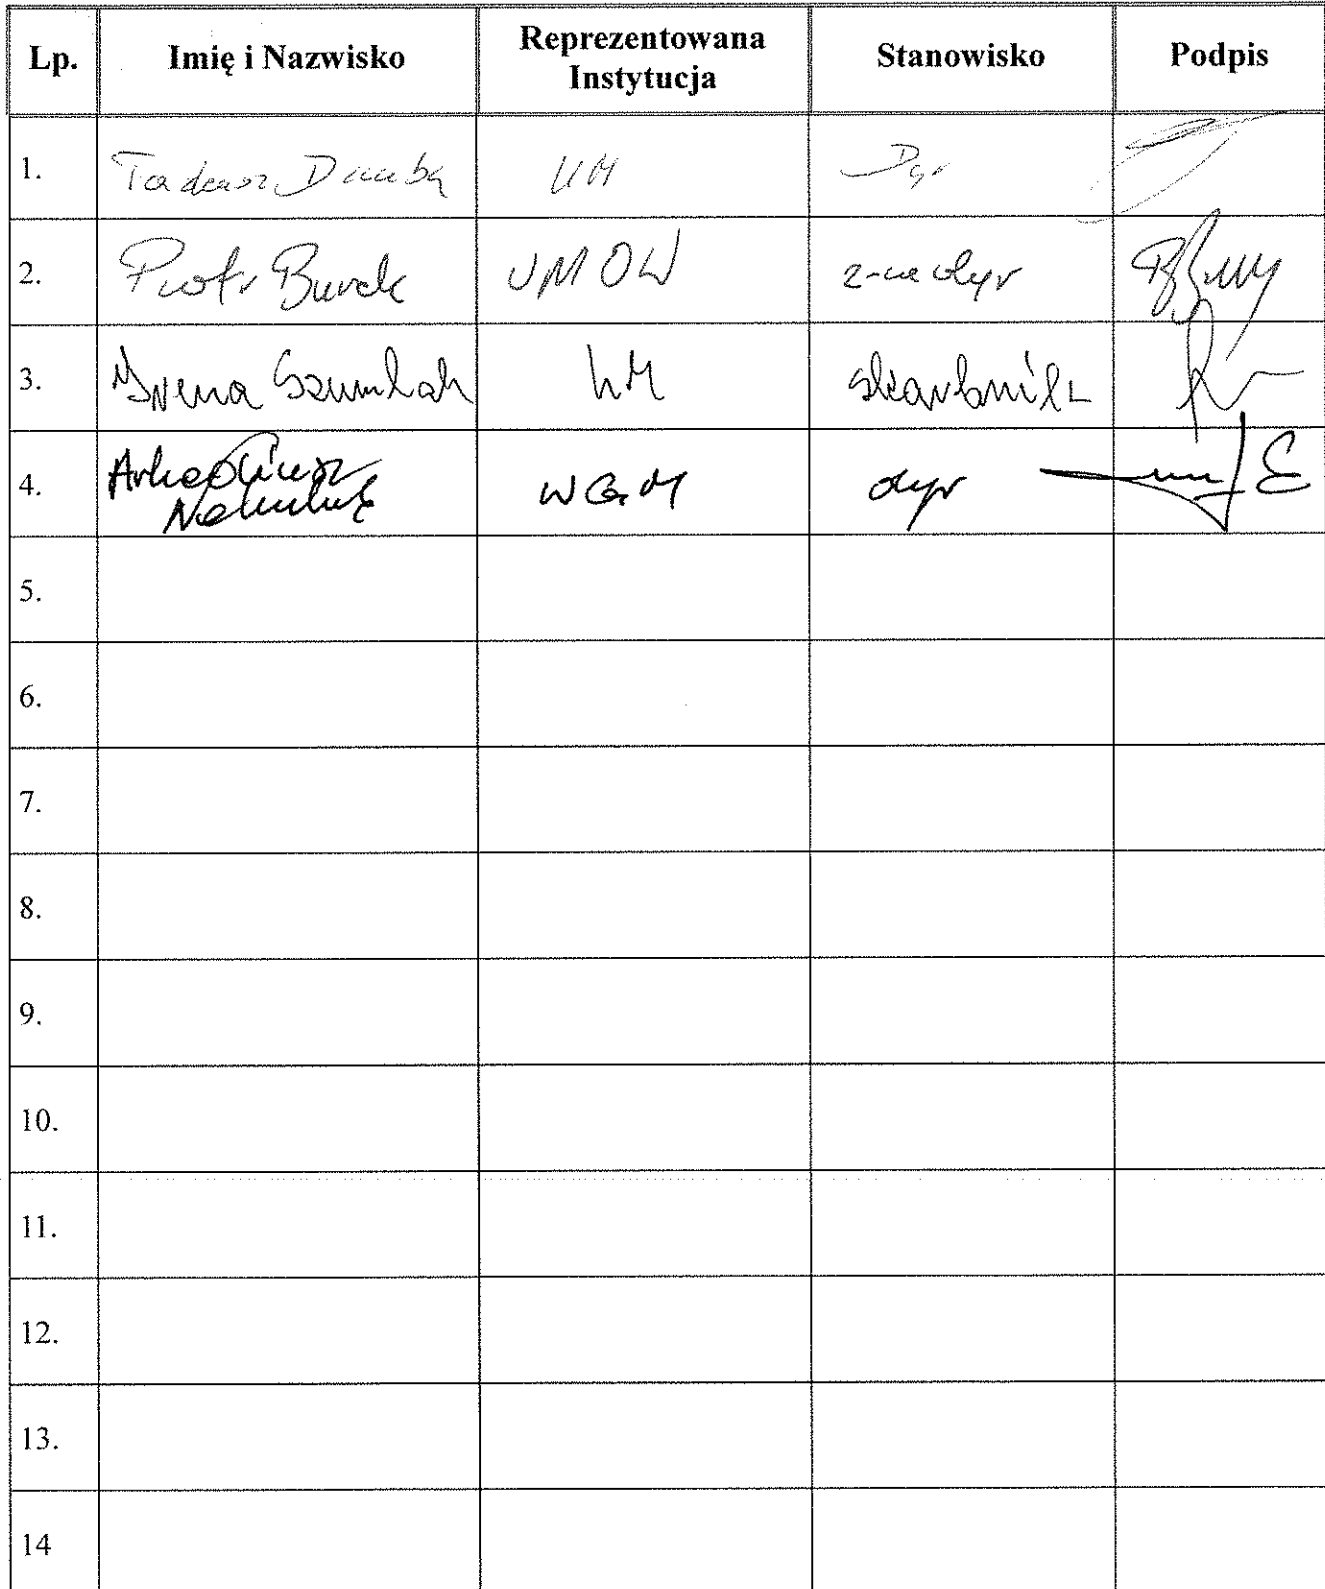 Lp. Imię i Nazwisko Reprezentowana Instytucja Stanowisko Podpis
1. Tadeusz UM Dyr
2. Piotr Burek UMOW z-ca dyr
3. Irena Szumlak UM skarbnik
4. Arkadiusz WGM dyr
5.
6.
7.
8.
9.
10.
11.
12.
13.
14